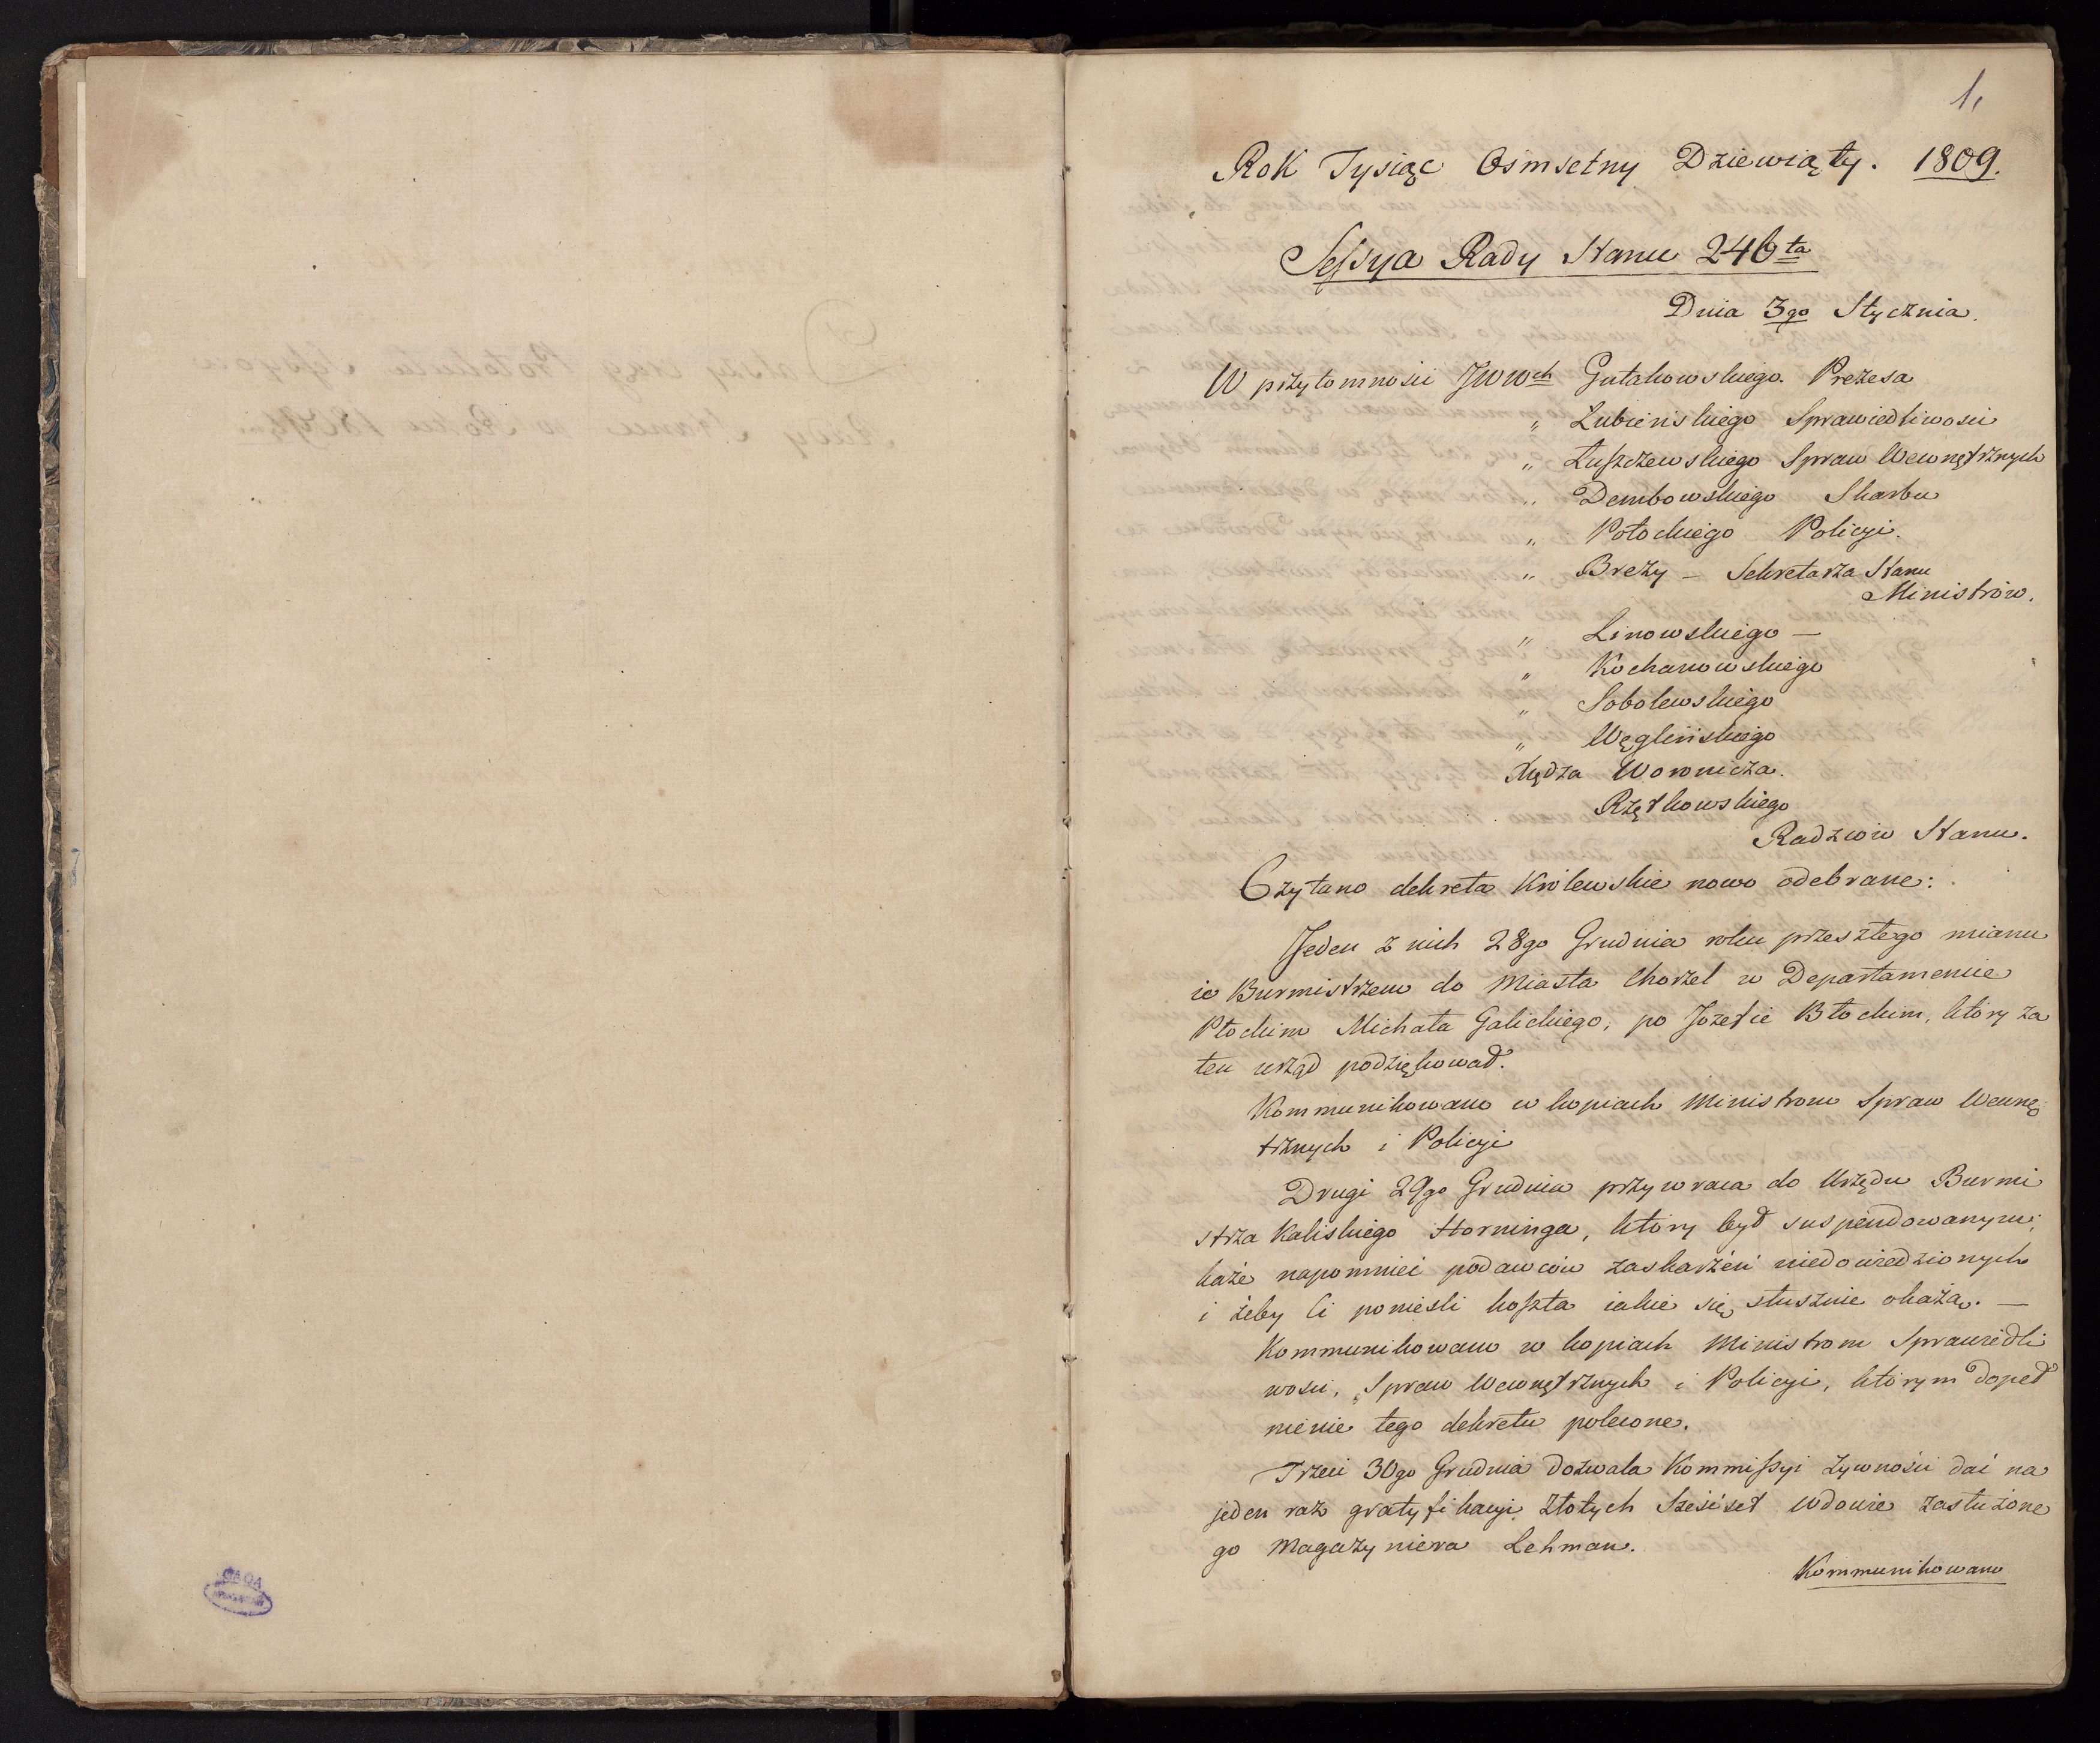 1,
Rok Tysiąc Osmsetny Dziewiąty. 1809.
Sessya Rady Stanu 246ta
Dnia 3go Stycznia.
W przytomnosci JWWch Gutakowskiego Prezesa
„ Łubieńskiego Sprawiedliwosci
„ Łuszczewskiego Spraw Wewnętrznych
„ Dembowskiego Skarbu
„ Potockiego Policyi.
„ Brezy – Sekretarza Stanu
Ministrów.
„ Linowskiego –
„ Kochanowskiego
„ Sobolewskiego
„ Węglińskiego
Xiędza Woronicza.
Rzętkowskiego
Radzców Stanu.
Czytano dekreta Królewskie nowo odebrane:
Jeden z nich 28go Grudnia roku przeszłego mianu
ie Burmistrzem do Miasta Chorzel w Departamencie
Płockim Michała Galickiego, po Jozefie Błockim, który za
ten urząd podziękował.
Kommunikowano w kopiach Ministrom Spraw Wewnę
trznych i Policyi
Drugi 29go Grudnia przywraca do Urzędu Burmi
strza Kaliskiego Horninga, który był suspendowanym;
każe napomniec podawców zaskarżeń niedowiedzionych
i żeby Ci ponieśli koszta iakie się słusznie okażą. —
Kommunikowano w kopiach Ministrom Sprawiedli
wosci, Spraw Wewnętrznych i Policyi, którym dopeł
nienie tego dekretu polecone.
Trzeci 30go Grudnia dozwala Kommissyi Zywności dać na
jeden raz gratyfikacyi Złotych Sześćset Wdowie zasłużone
go Magazyniera Lehman.
Kommunikowano